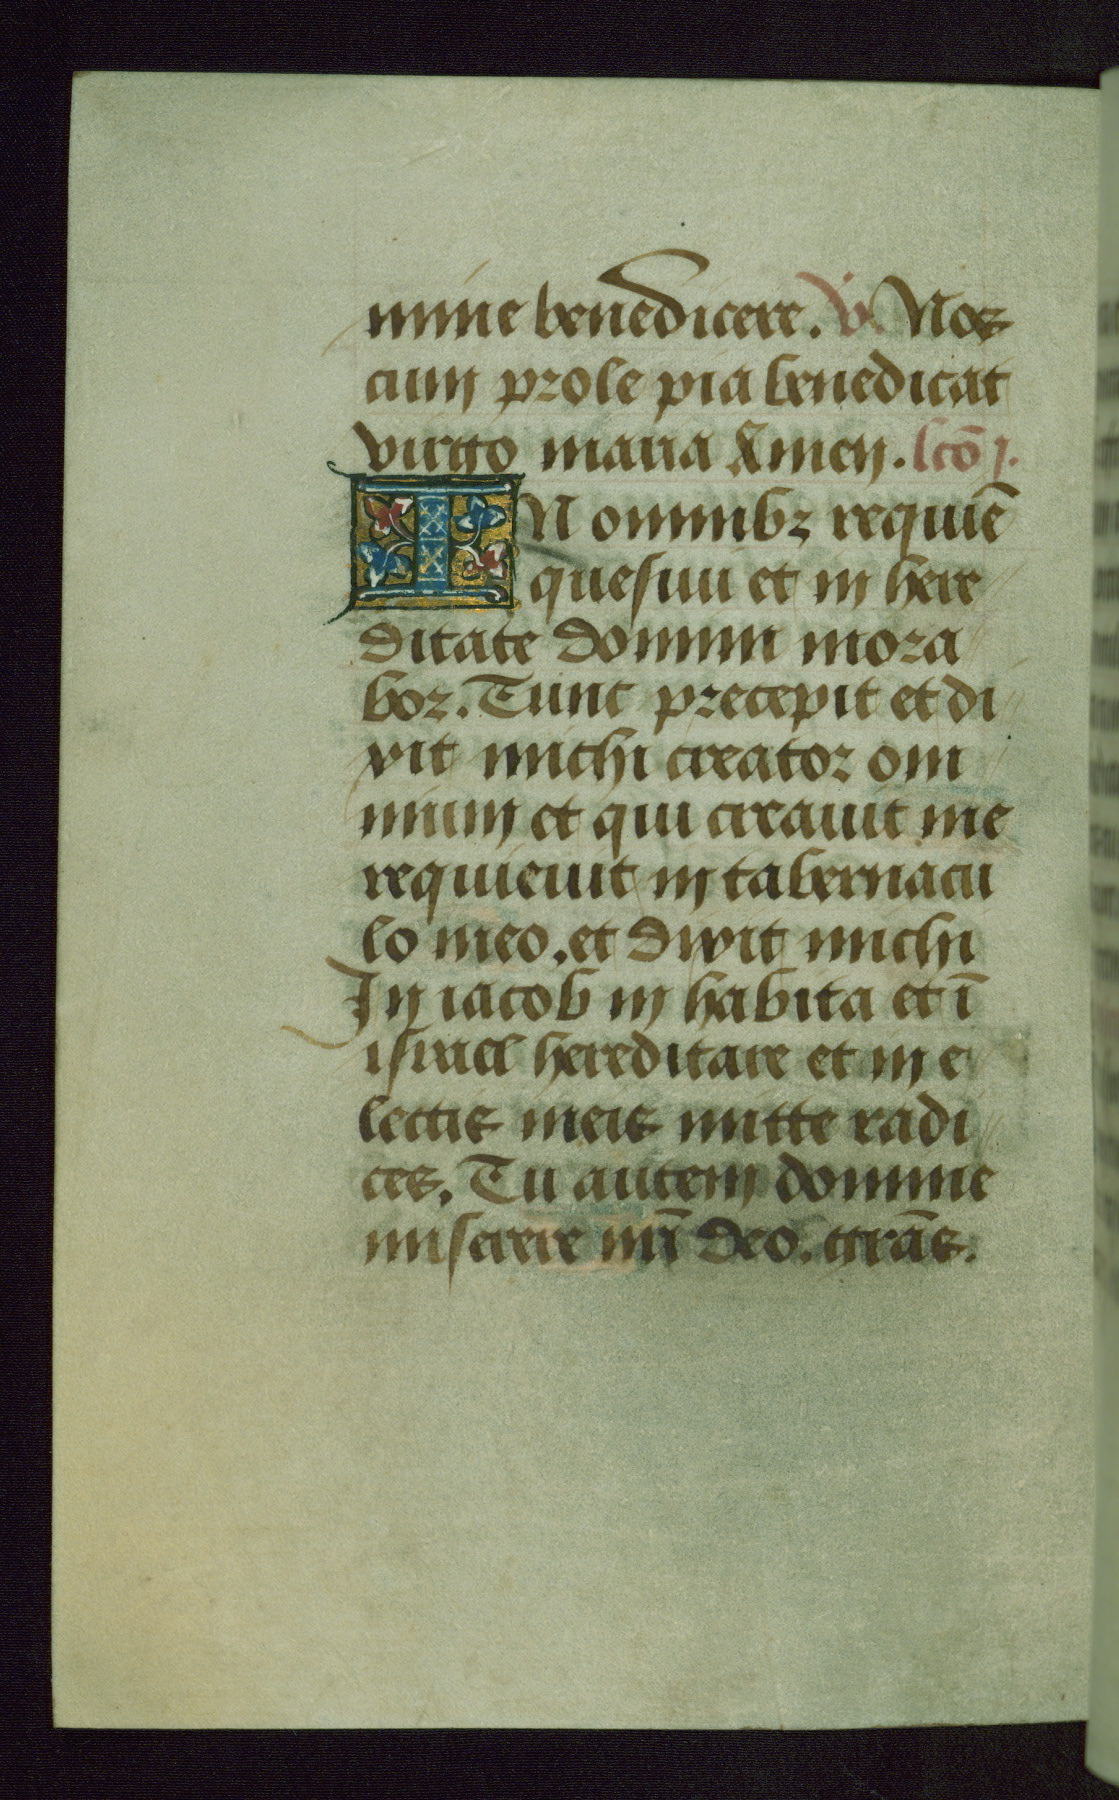 mine benedicere. V. Nos
cum prole pia benedicat
virgo maria Amen. lcō j.
IN omnibz requiē
quesiui et in here
ditate domini mora
bor. Tunc precepit et di
xit michi creator om
nium et qui creauit me
requieuit in tabernacu
lo meo. et dixit michi
In iacob in habita et ī
israel hereditare et in e
lectis meis mitte radi
ces. Tu autem domine
miserere nr̄i deo. gr̄as.